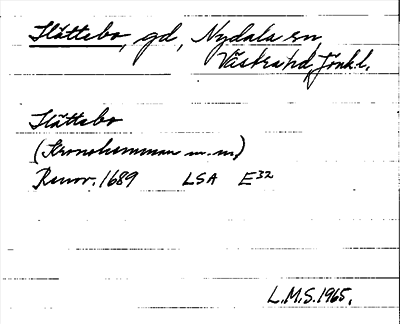 Slättebo, gd, Nydala sn
Västra hd, Jönk.l.
Slättebo
(Kronohemman m.m.)
Renov. 1689 LSA E32
L.M.S. 1965.